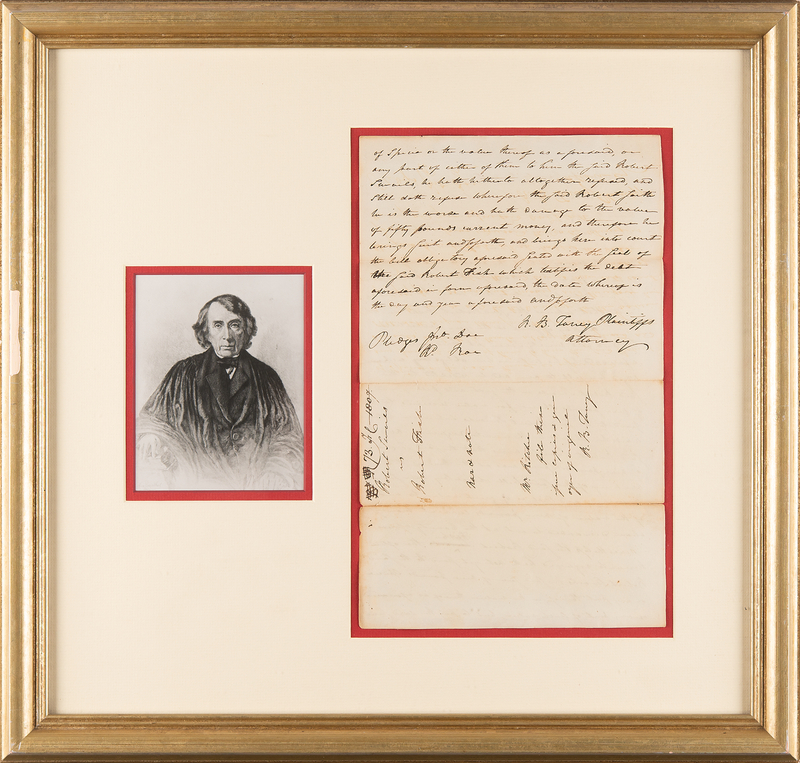 of Specie or the value thereof as aforesaid, or
any part of either of them to him the said Robert
he hath hitherto altogether refused, and
Still doth refuse wherefore the said Robert saith
he is the worse and hath damage to the value
of fifty pounds current money, and therefore he
brings suit and so forth, and brings here into court
the bill obligatory aforesaid sealed with the Seal of
the said Robert Fish which testifies the debt
aforesaid in form aforesaid, the date whereof is
the day and year aforesaid and so forth
R. B. Taney Plaintiffs
Attorney
Pledges Jno. Doe
Rd. Roe
Robert
vs
Robert Fish
Narr & note
Mr Ritchie
file this
R B Taney